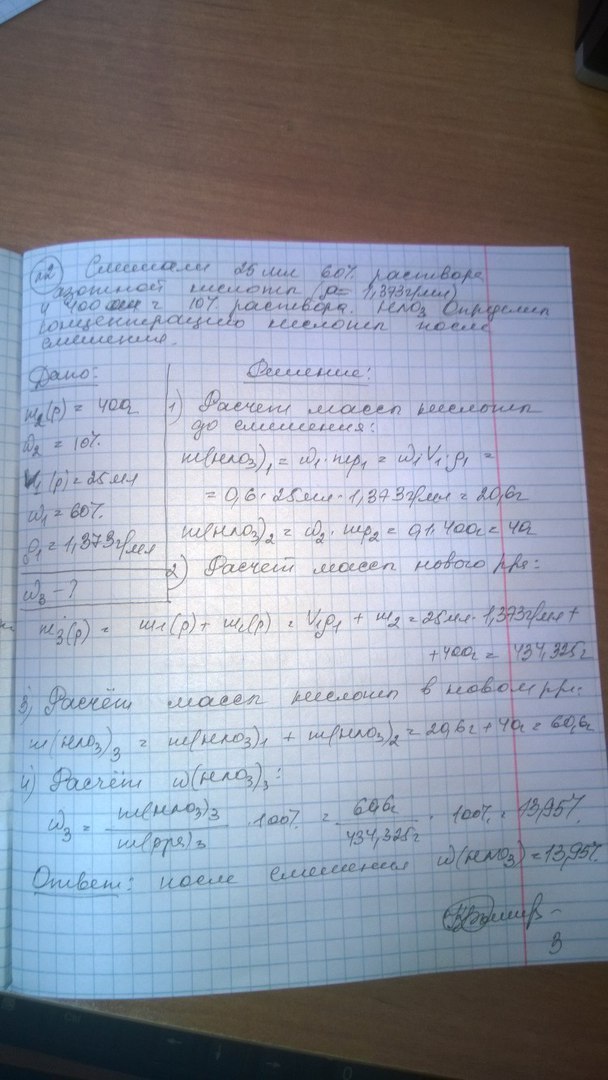 №2 Смешали 25 мл 60% раствора
азотной кислоты (ρ= 1,373г/мл)
и 400 г 10% раствора. HNO3 Определить
концентрацию кислоты после
смешения.
Дано:
m2(р) = 400г
ω2 = 10%
V1(р) = 25мл
ω1 = 60%
ρ1 = 1,373г/мл
ω3 - ?
Решение:
1) Расчет массы кислоты
до смешения:
m(HNO3)1 = ω1·mр1 = ω1V1·ρ1 =
= 0,6·25мл·1,373г/мл = 20,6г
m(HNO3)2 = ω2·mр2 = 0,1·400г = 40г
2) Расчет массы нового р-ра:
m3(р) = m1(р) + m2(р) = V1ρ1 + m2 = 25мл·1,373г/мл +
+ 400г = 434,325г
3) Расчёт массы кислоты в новом р-ре:
m(HNO3)3 = m(HNO3)1 + m(HNO3)2 = 20,6г + 40г = 60,6г
4) Расчёт ω(HNO3)3:
ω3 = m(HNO3)3 / m(р-ра)3 · 100% = 60,6г / 434,325г · 100% = 13,95%
Ответ: после смешения ω(HNO3) = 13,95%
3